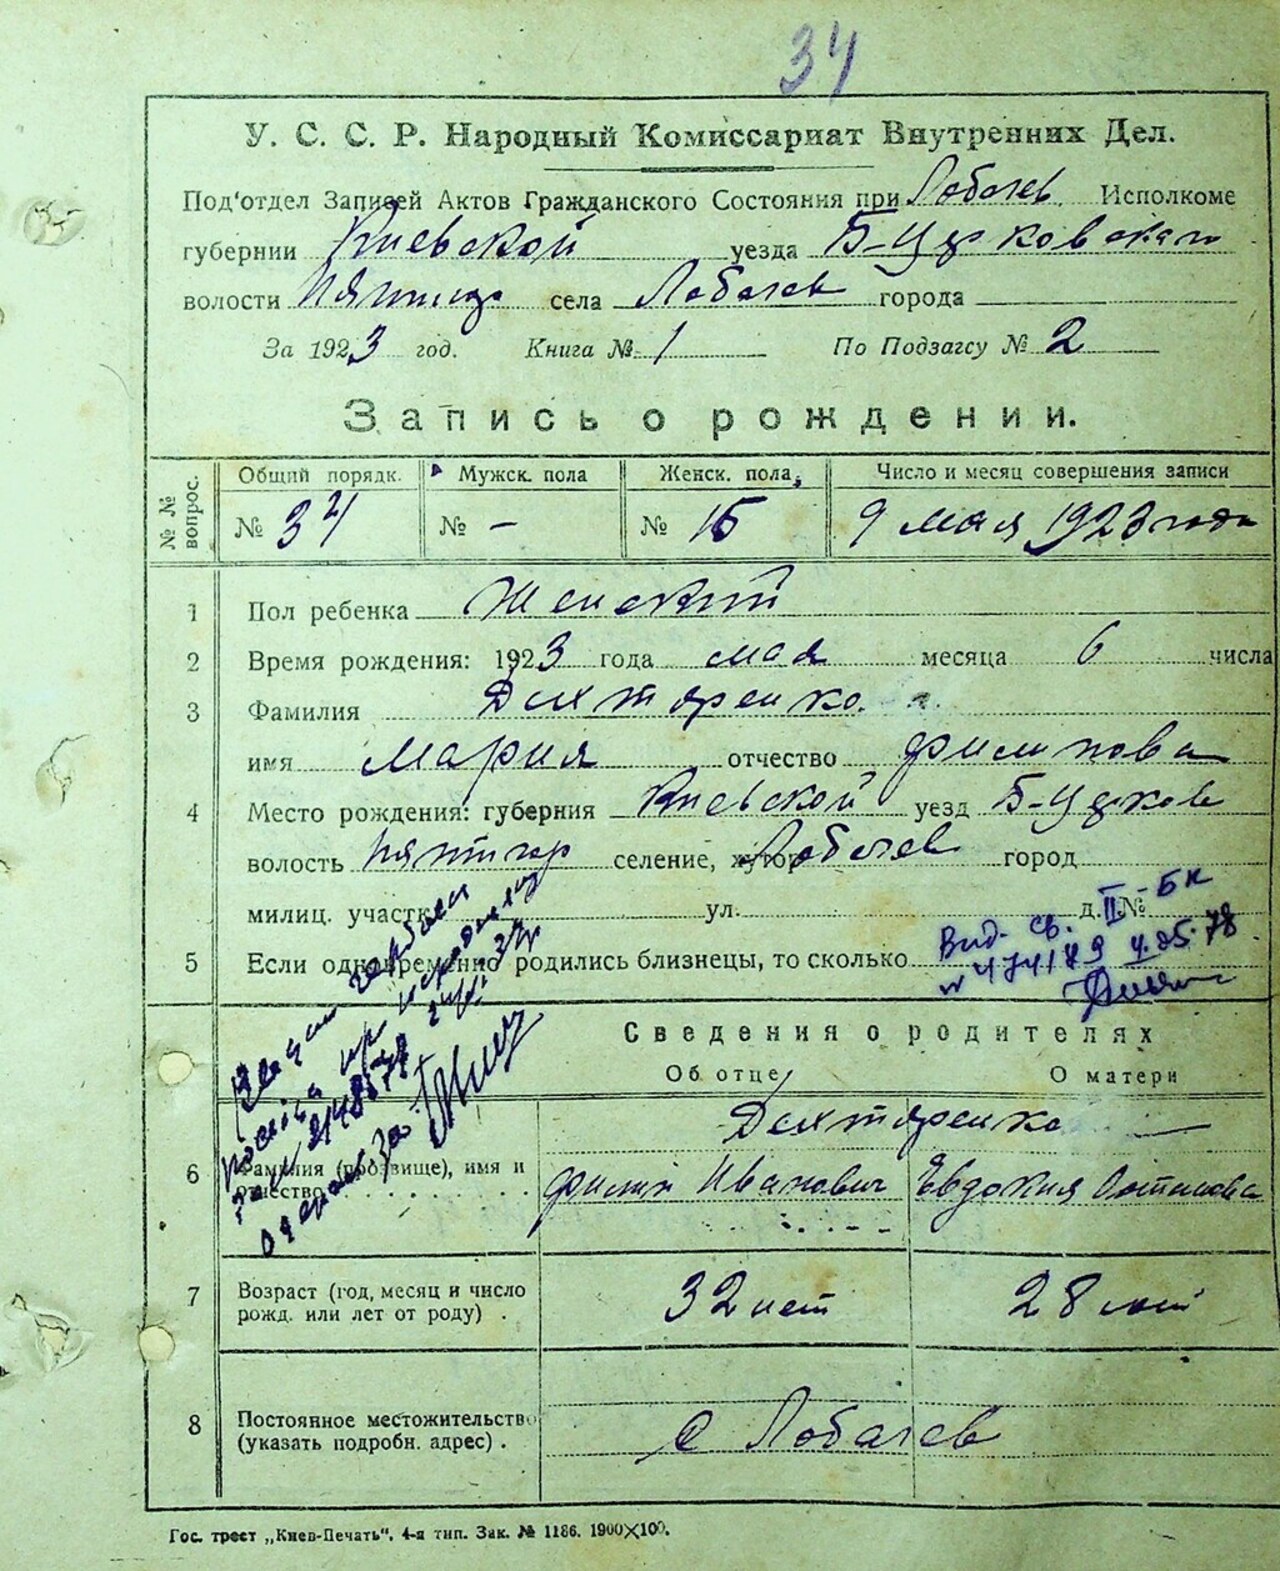 34
У. С. С. Р. Народный Комиссариат Внутренних Дел.
Под'отдел Записей Актов Гражданского Состояния при Лобачев. Исполкоме
губернии Киевской уезда Б-Церковского
волости села Лобачев города
За 1923 год. Книга № 1 По Подзагсу № 2
Запись о рождении.
№ № вопрос. Общий порядк. Мужск. пола Женск. пола, Число и месяц совершения записи
№ 34 № - № 15 9 мая 1923 года
1 Пол ребенка Женский
2 Время рождения: 1923 года мая месяца 6 числа
3 Фамилия Дехтяренко.
имя Мария отчество Филипова
4 Место рождения: губерния Киевской уезд Б-Церков
волость Пятигор селение, хутор Лобачев город
милиц. участк ул. д. №
5 Если одновременно родились близнецы, то сколько
Вид. св. II-БК
№ 474189 4.05.78
Сведения о родителях
Об отце О матери
Дехтяренко
6 Фамилия (прозвище), имя и отчество Филип Иванович Евдокия
7 Возраст (год, месяц и число рожд. или лет от роду) . 32 лет 28 лет
8 Постоянное местожительство (указать подробн. адрес) . с Лобачев
Гос. трест „Киев-Печать“, 4-я тип. Зак. № 1186. 1900×100.